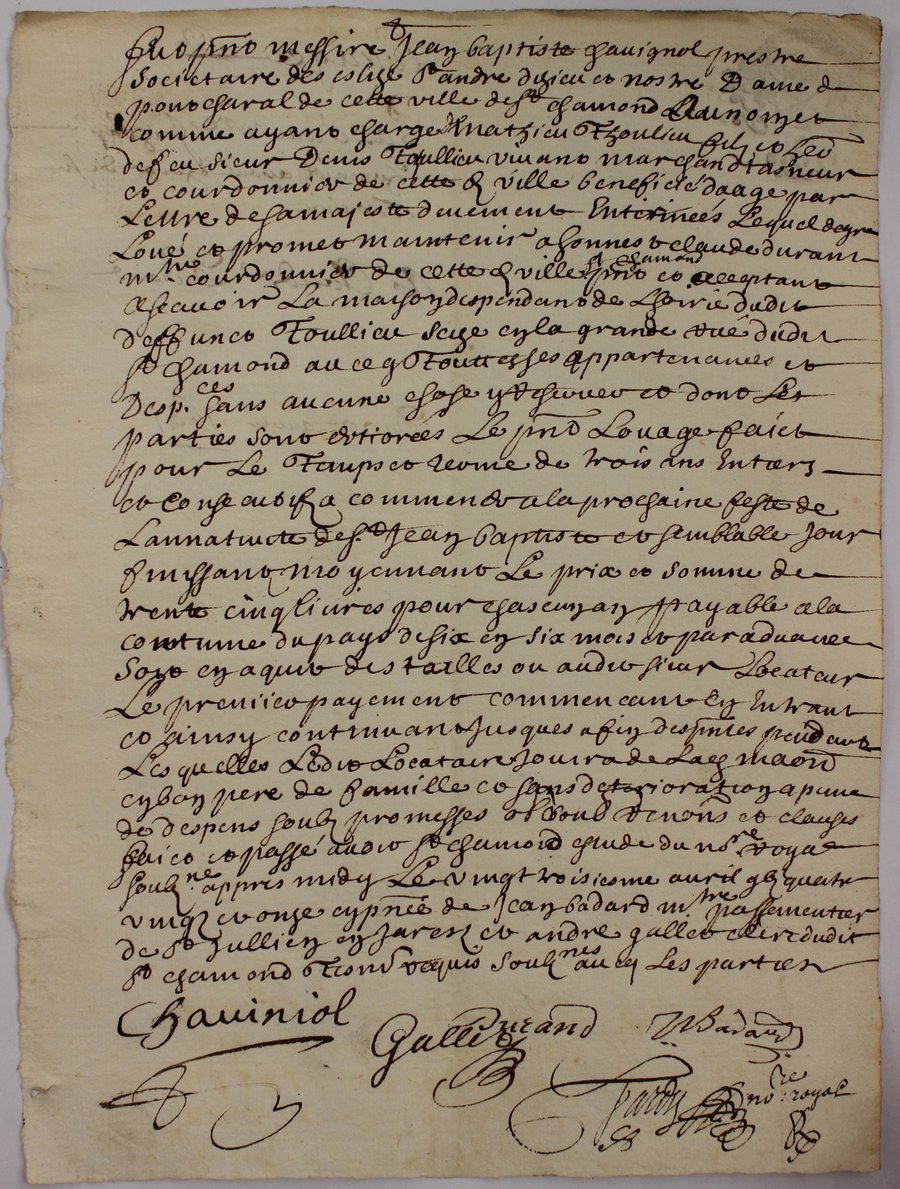 Fut pnt messire Jean baptiste chavignol prestre
Societaire des eslize St andre dizieu et nostre Dame de
pontcharal de cette ville de St chamond Au nom et
comme ayant charge Mathieu Thoulieu filz et her
de feu sieur Denis Toullieu vivant marchand taneur
et courdonnier de cette d ville beneficié daage par
Lettre de sa majesté deuement Enterinées Lequel de gre
Loué et promet maintenir a honneste claude durant
mtre courdonnier de cette d ville St chamond pnt et acceptant
Ascavoir La maison despendant de Lhoirie dudit
deffunct Toullieu size en la grande rue dudit
St chamond avecq Touttes ses appartenances et
Desp.ces sans aucune chose reserver et dont Les
parties sont Le pnt Louage faict
pour Le Temps et terme de trois ans Entiers
et consecutifz a commencer a la prochaine feste de
La nativité de St Jean baptiste et semblable Jour
finissant moyennant Le prix et somme de
trente cinq livres pour chascun an payable a la
coutume du pays de six en six mois et par advance
Soyt en aquit des tailles ou audit sieur Locateur
Le premier payement commencant En Entrant
et ainsy continuant Jusques a fin desptes pendant
Lesquelles Ledit Locataire Jouira de Lad maon
en bon pere de famille et sans deterioration a peine
de despens soubz promesses oblions renons et clauses
faict et passé audit St chamond estude du nre royal
soubz.ne appres midy Le vingt troisiesme avril gbz quatre
vingz et onze en pnce de Jean badard mtre passementier
de St Jullien en Jarez et andre gallet clerc dudit
St chamond Tesmz requis soubz.nes avec Les parties
Chaviniol
Gallet
Durand
Badard
Tardy
nore royal